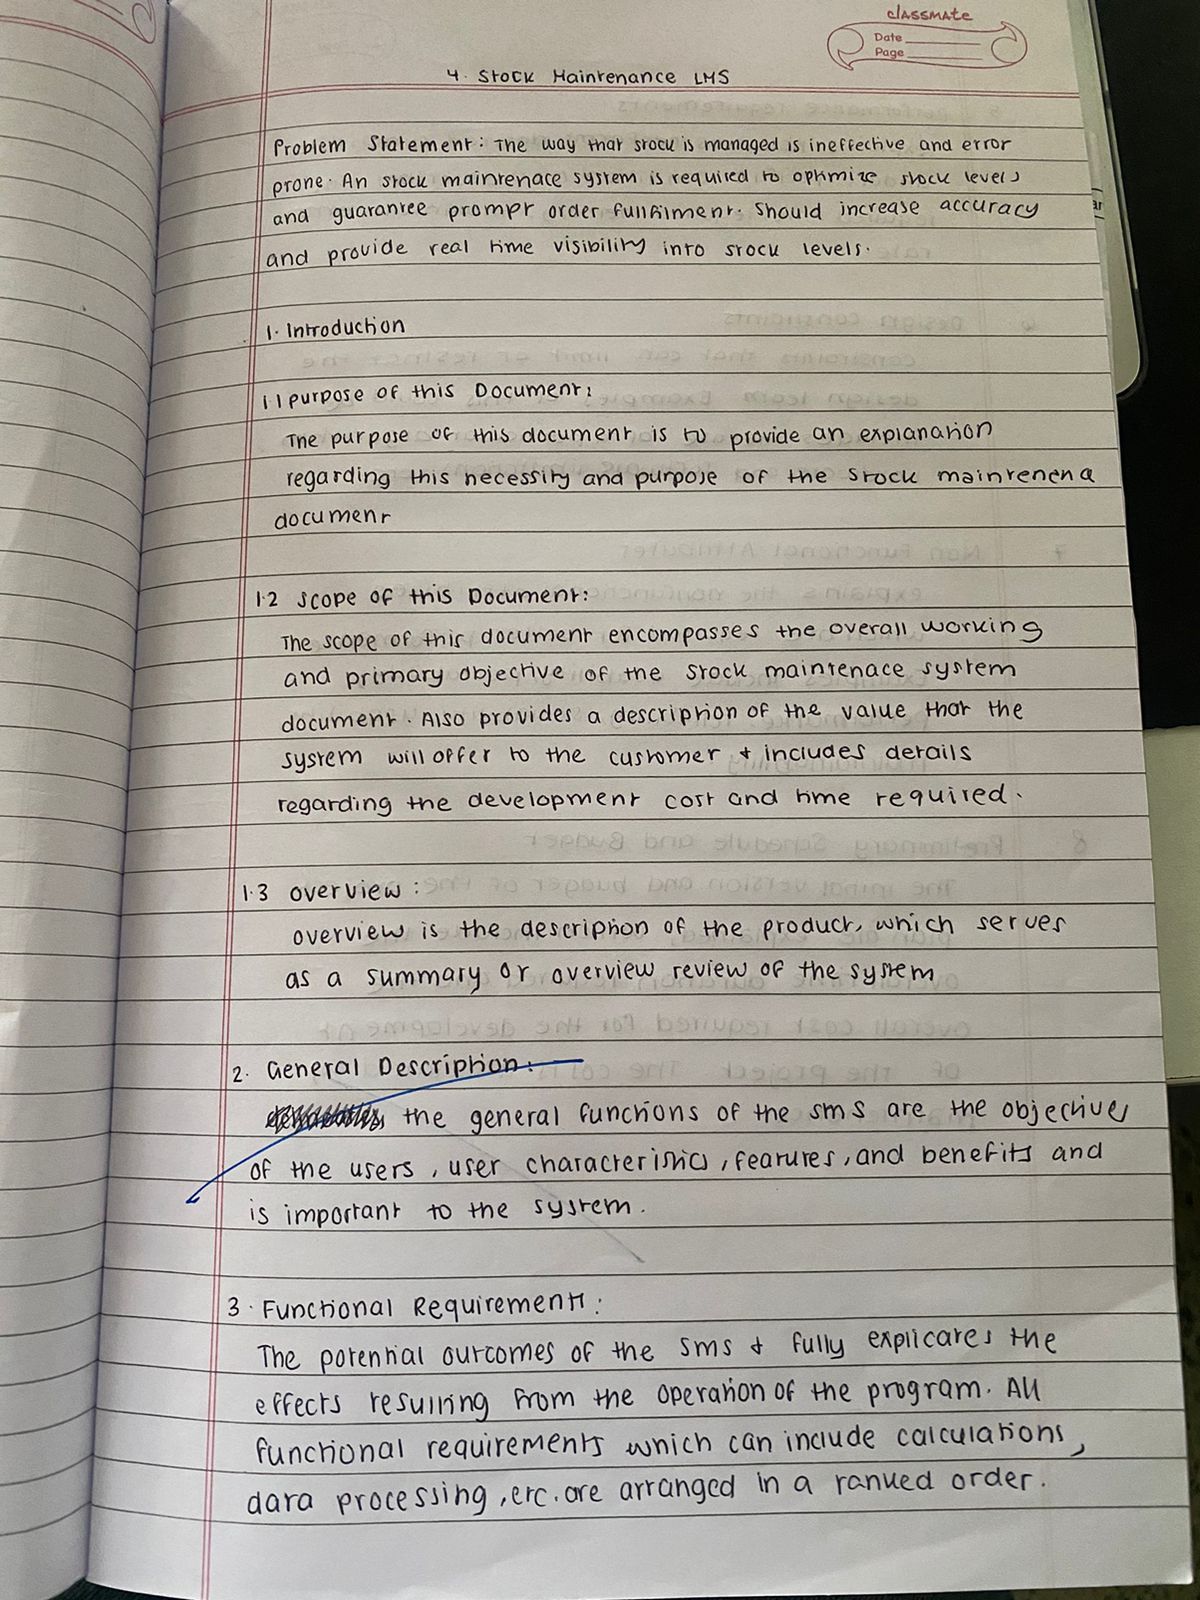 classmate
Date
Page
4. Stock Maintenance LMS
Problem Statement: The way that stock is managed is ineffective and error
prone. An stock maintenace system is required to optimize stock levels
and guarantee prompt order fullfilment. Should increase accuracy
and provide real time visibility into stock levels.
1. Introduction
1.1 purpose of this Document:
The purpose of this document is to provide an explanation
regarding this necessity and purpose of the stock maintenena
document
1.2 Scope of this Document:
The scope of this document encompasses the overall working
and primary objective of the stock maintenace system
document. Also provides a description of the value that the
system will offer to the customer & includes details
regarding the development cost and time required.
1.3 overview:
overview is the description of the product, which serves
as a summary or overview review of the system
2. General Description:
the general functions of the sms are the objectives
of the users, user characteristics, features, and benefits and
is important to the system.
3. Functional Requirements:
The potential outcomes of the sms & fully explicates the
effects resulting from the operation of the program. All
functional requirements which can include calculations,
data processing, etc. are arranged in a ranked order.